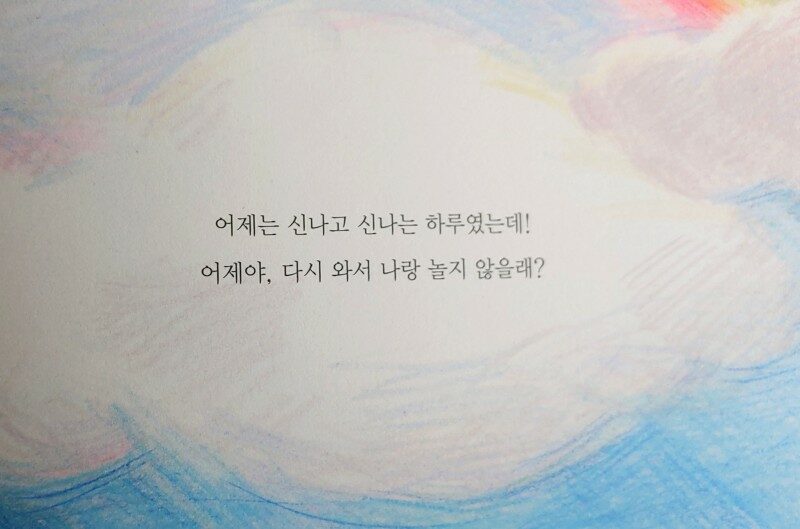 어제는 신나고 신나는 하루였는데!
어제야, 다시 와서 나랑 놀지 않을래?